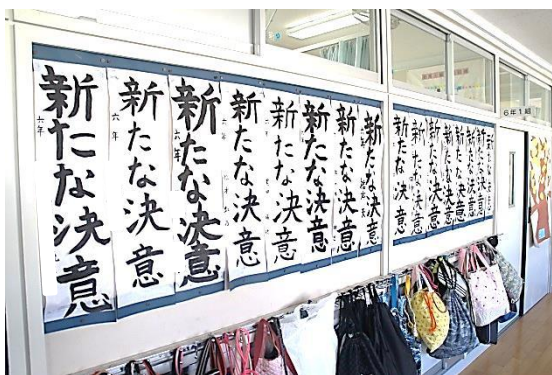 6年1組
新たな決意
六年
新たな決意
六年
新たな決意
六年
新たな決意
新たな決意
新たな決意
新たな決意
新たな決意
新たな決意
新たな決意
新たな決意
新たな決意
新たな決意
新たな決意
新たな決意